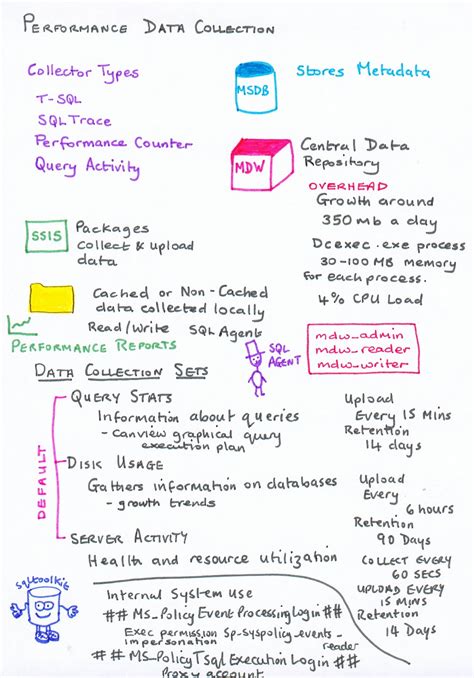 PERFORMANCE DATA COLLECTION
Collector Types
T-SQL
SQL Trace
Performance Counter
Query Activity
MSDB
Stores Metadata
MDW
Central Data
Repository
OVERHEAD
Growth around
350 mb a day
Dcexec.exe process
30-100 MB memory
for each process.
4% CPU Load
SSIS
Packages
collect & upload
data
Cached or Non-Cached
data collected locally
Read/Write SQL Agents
PERFORMANCE REPORTS
SQL
AGENT
mdw_admin
mdw_reader
mdw_writer
DATA COLLECTION SETS
DEFAULT
QUERY STATS
Information about queries
- Can view graphical query
execution plan
Upload
Every 15 Mins
Retention
14 days
DISK USAGE
Gathers information on databases
- growth trends
Upload
Every
6 hours
Retention
90 Days
SERVER ACTIVITY
Health and resource utilization
COLLECT EVERY
60 SECS
UPLOAD EVERY
15 MINS
Retention
14 Days
sqltoolkit
Internal System Use
## MS_Policy Event Processing Login ##
Exec permission Sp-syspolicy_events-
impersonation reader
## MS_Policy Tsql Execution Login ##
Proxy account.